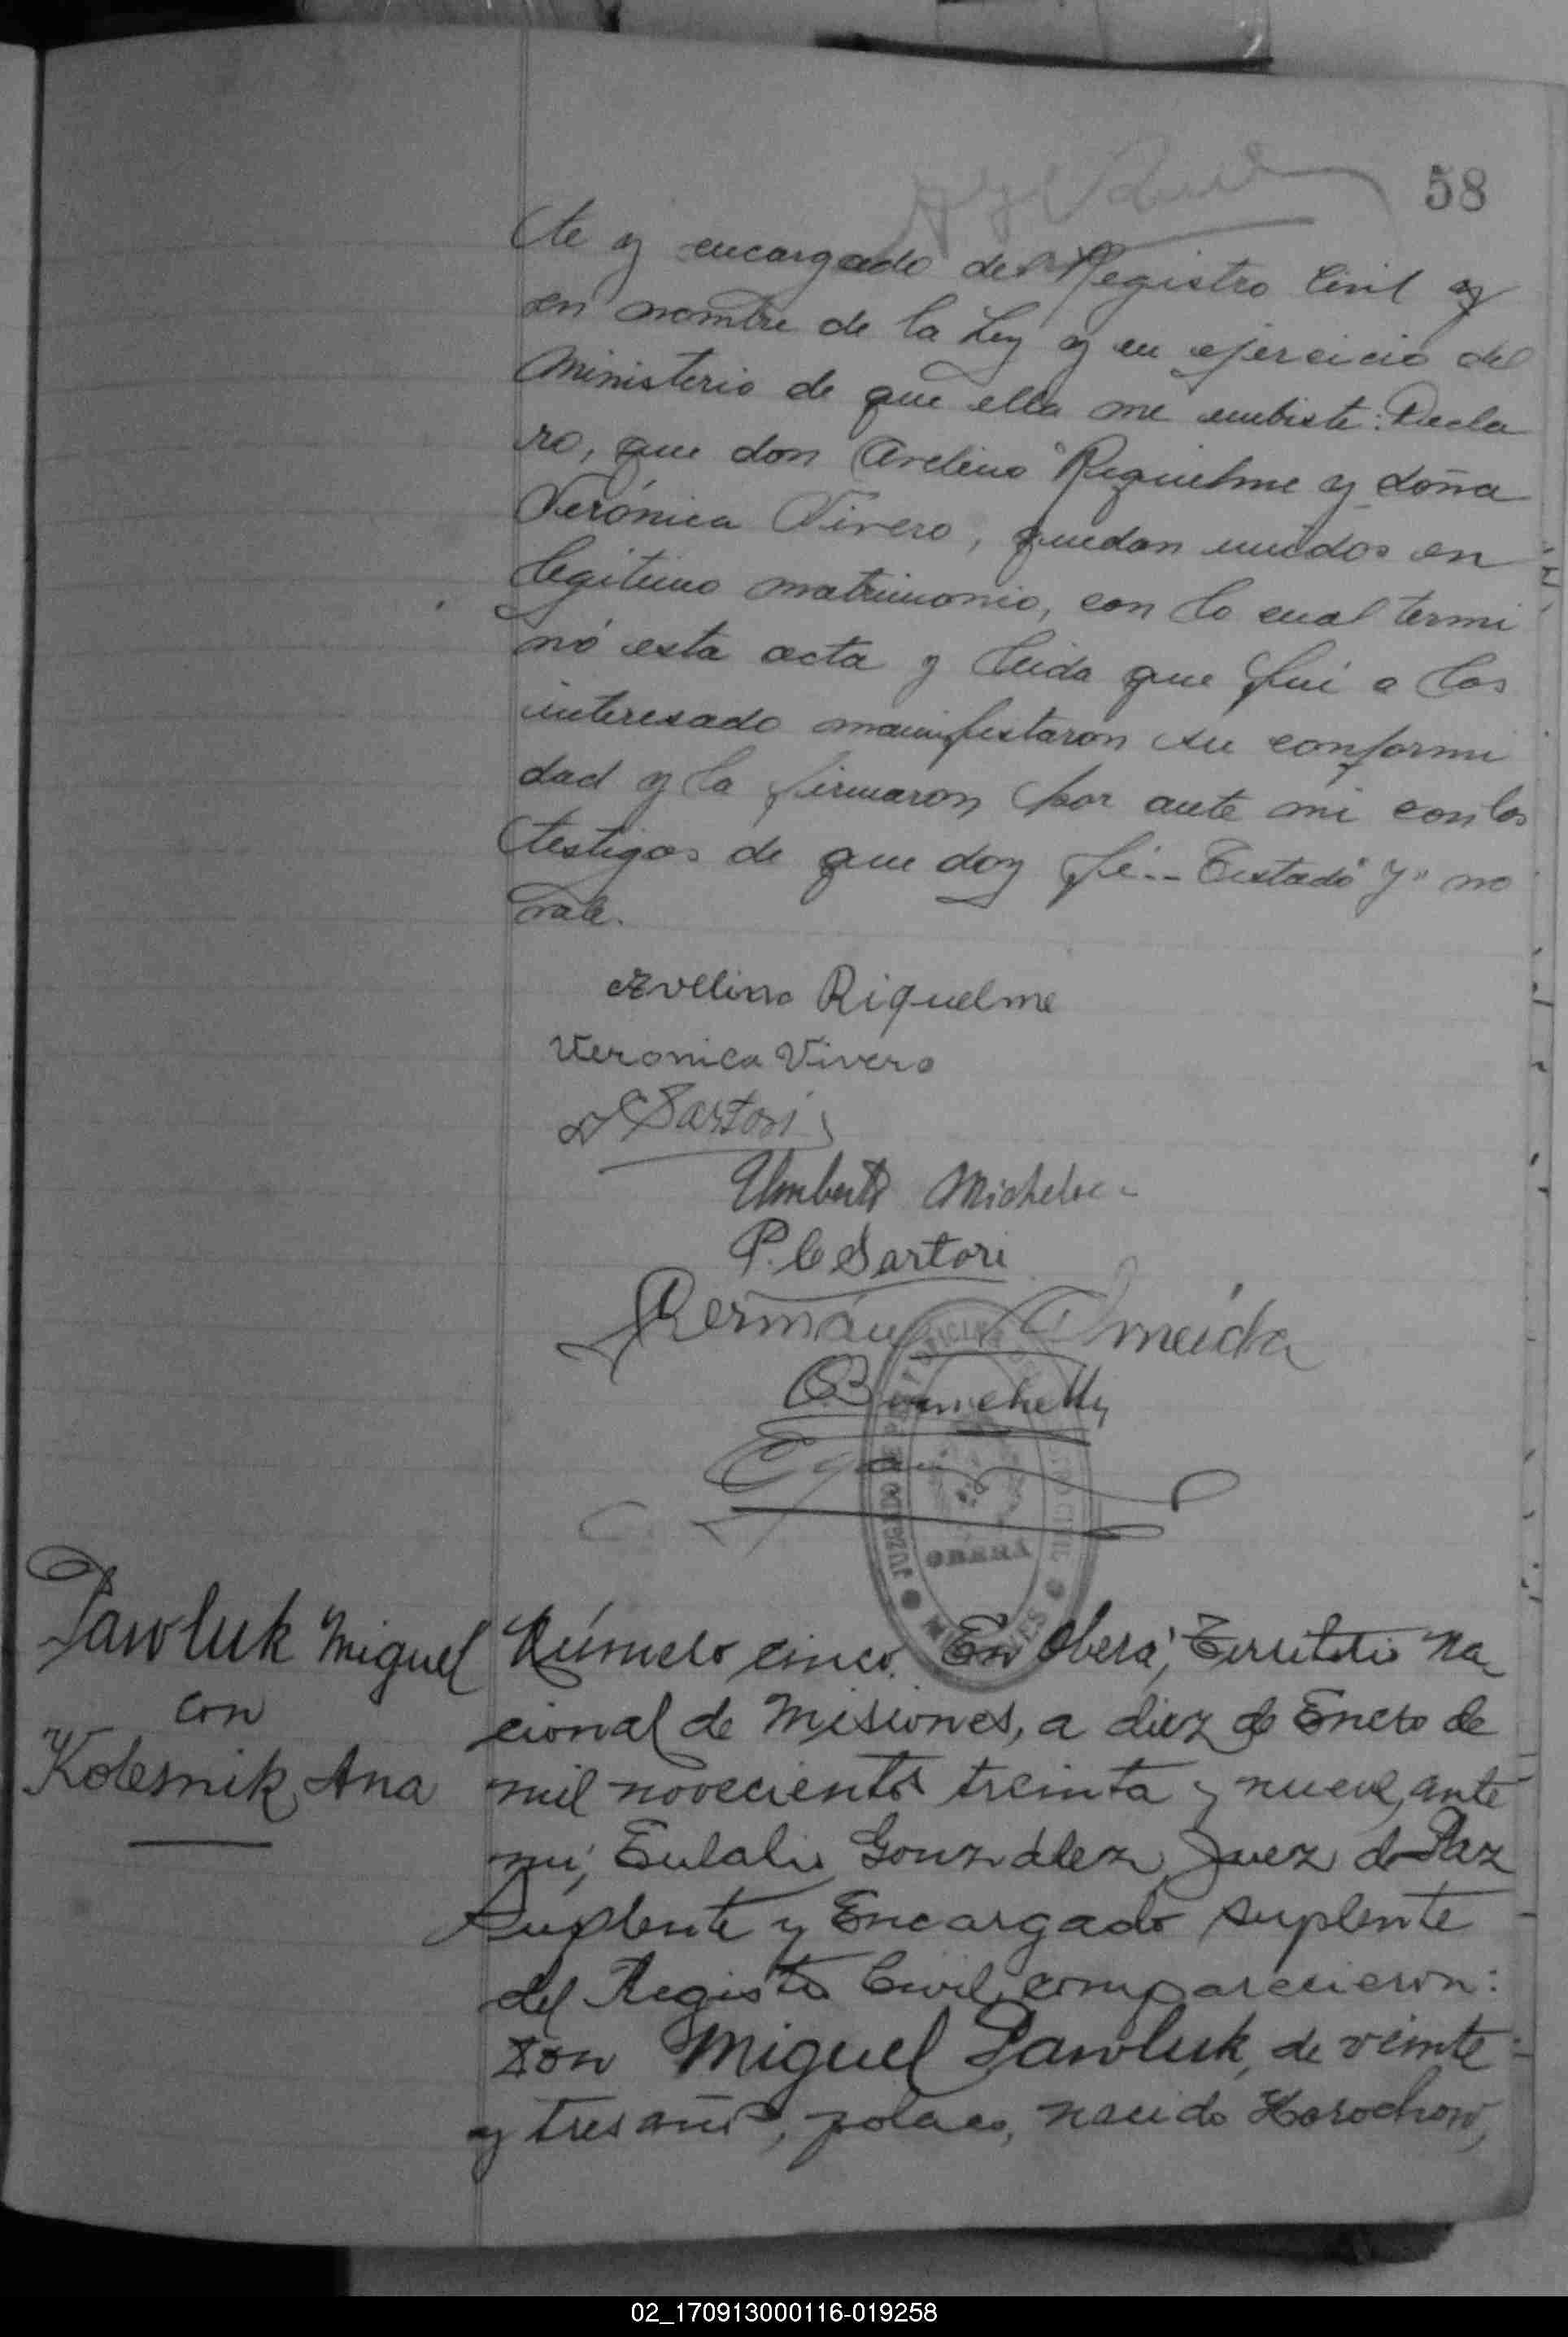 58
te y encargado del Registro Civil y
en nombre de la Ley y en ejercicio del
ministerio de que ella me embiste: Decla
ro, que don Avelino Riquelme y doña
Verónica Vivero, quedan unidos en
legitimo matrimonio, con lo cual termi
nó esta acta y leida que fué a los
interesado manifestaron su conformi
dad y la firmaron por ante mi con los
testigos de que doy fé.-- Testado "y" no
vale.
Avelino Riquelme
Veronica Vivero
Sartori
Umberto
P. C Sartori
Germán Almeida
OBERÁ
Pawluk Miguel
con
Kolesnik Ana
Número cinco. En Oberá, Territorio Na
cional de Misiones, a diez de Enero de
mil novecientos treinta y nueve, ante
mi, Eulalio González, Juez de Paz
Suplente y Encargado suplente
del Registro Civil, comparecieron:
Don Miguel Pawluk, de veinte
y tres años, polaco, nacido Horochow,
02_170913000116-019258